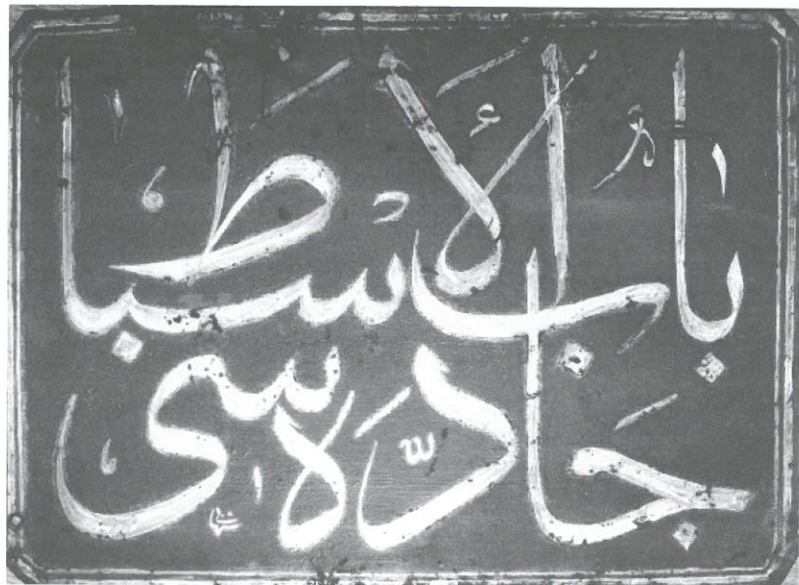 باب الأسباط
جادّه سی